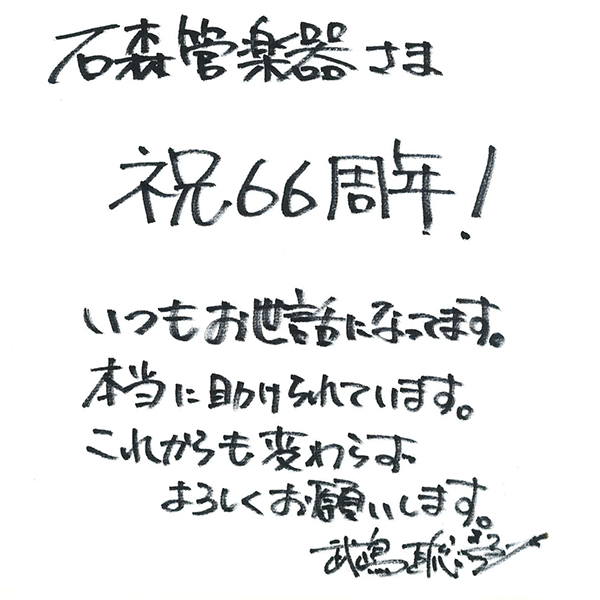 石森管楽器さま
祝66周年!
いつもお世話になってます。
本当に助けられています。
これからも変わらず
よろしくお願いします。
武嶋聡